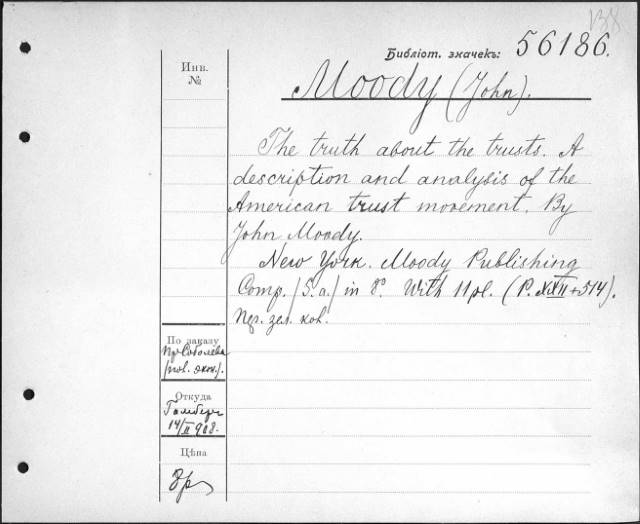 138
Библіот. значекъ: 56186.
Инв.
№
Moody (John).
The truth about the trusts. A
description and analysis of the
American trust movement. By
John Moody.
New York. Moody Publishing
Comp. (S. a.) in 8°. With 11 pl. (P. XXII+514).
зел. кол.
По заказу
Пр. Соболева
(пол. экон.).
Откуда
14/II 908.
Цѣна